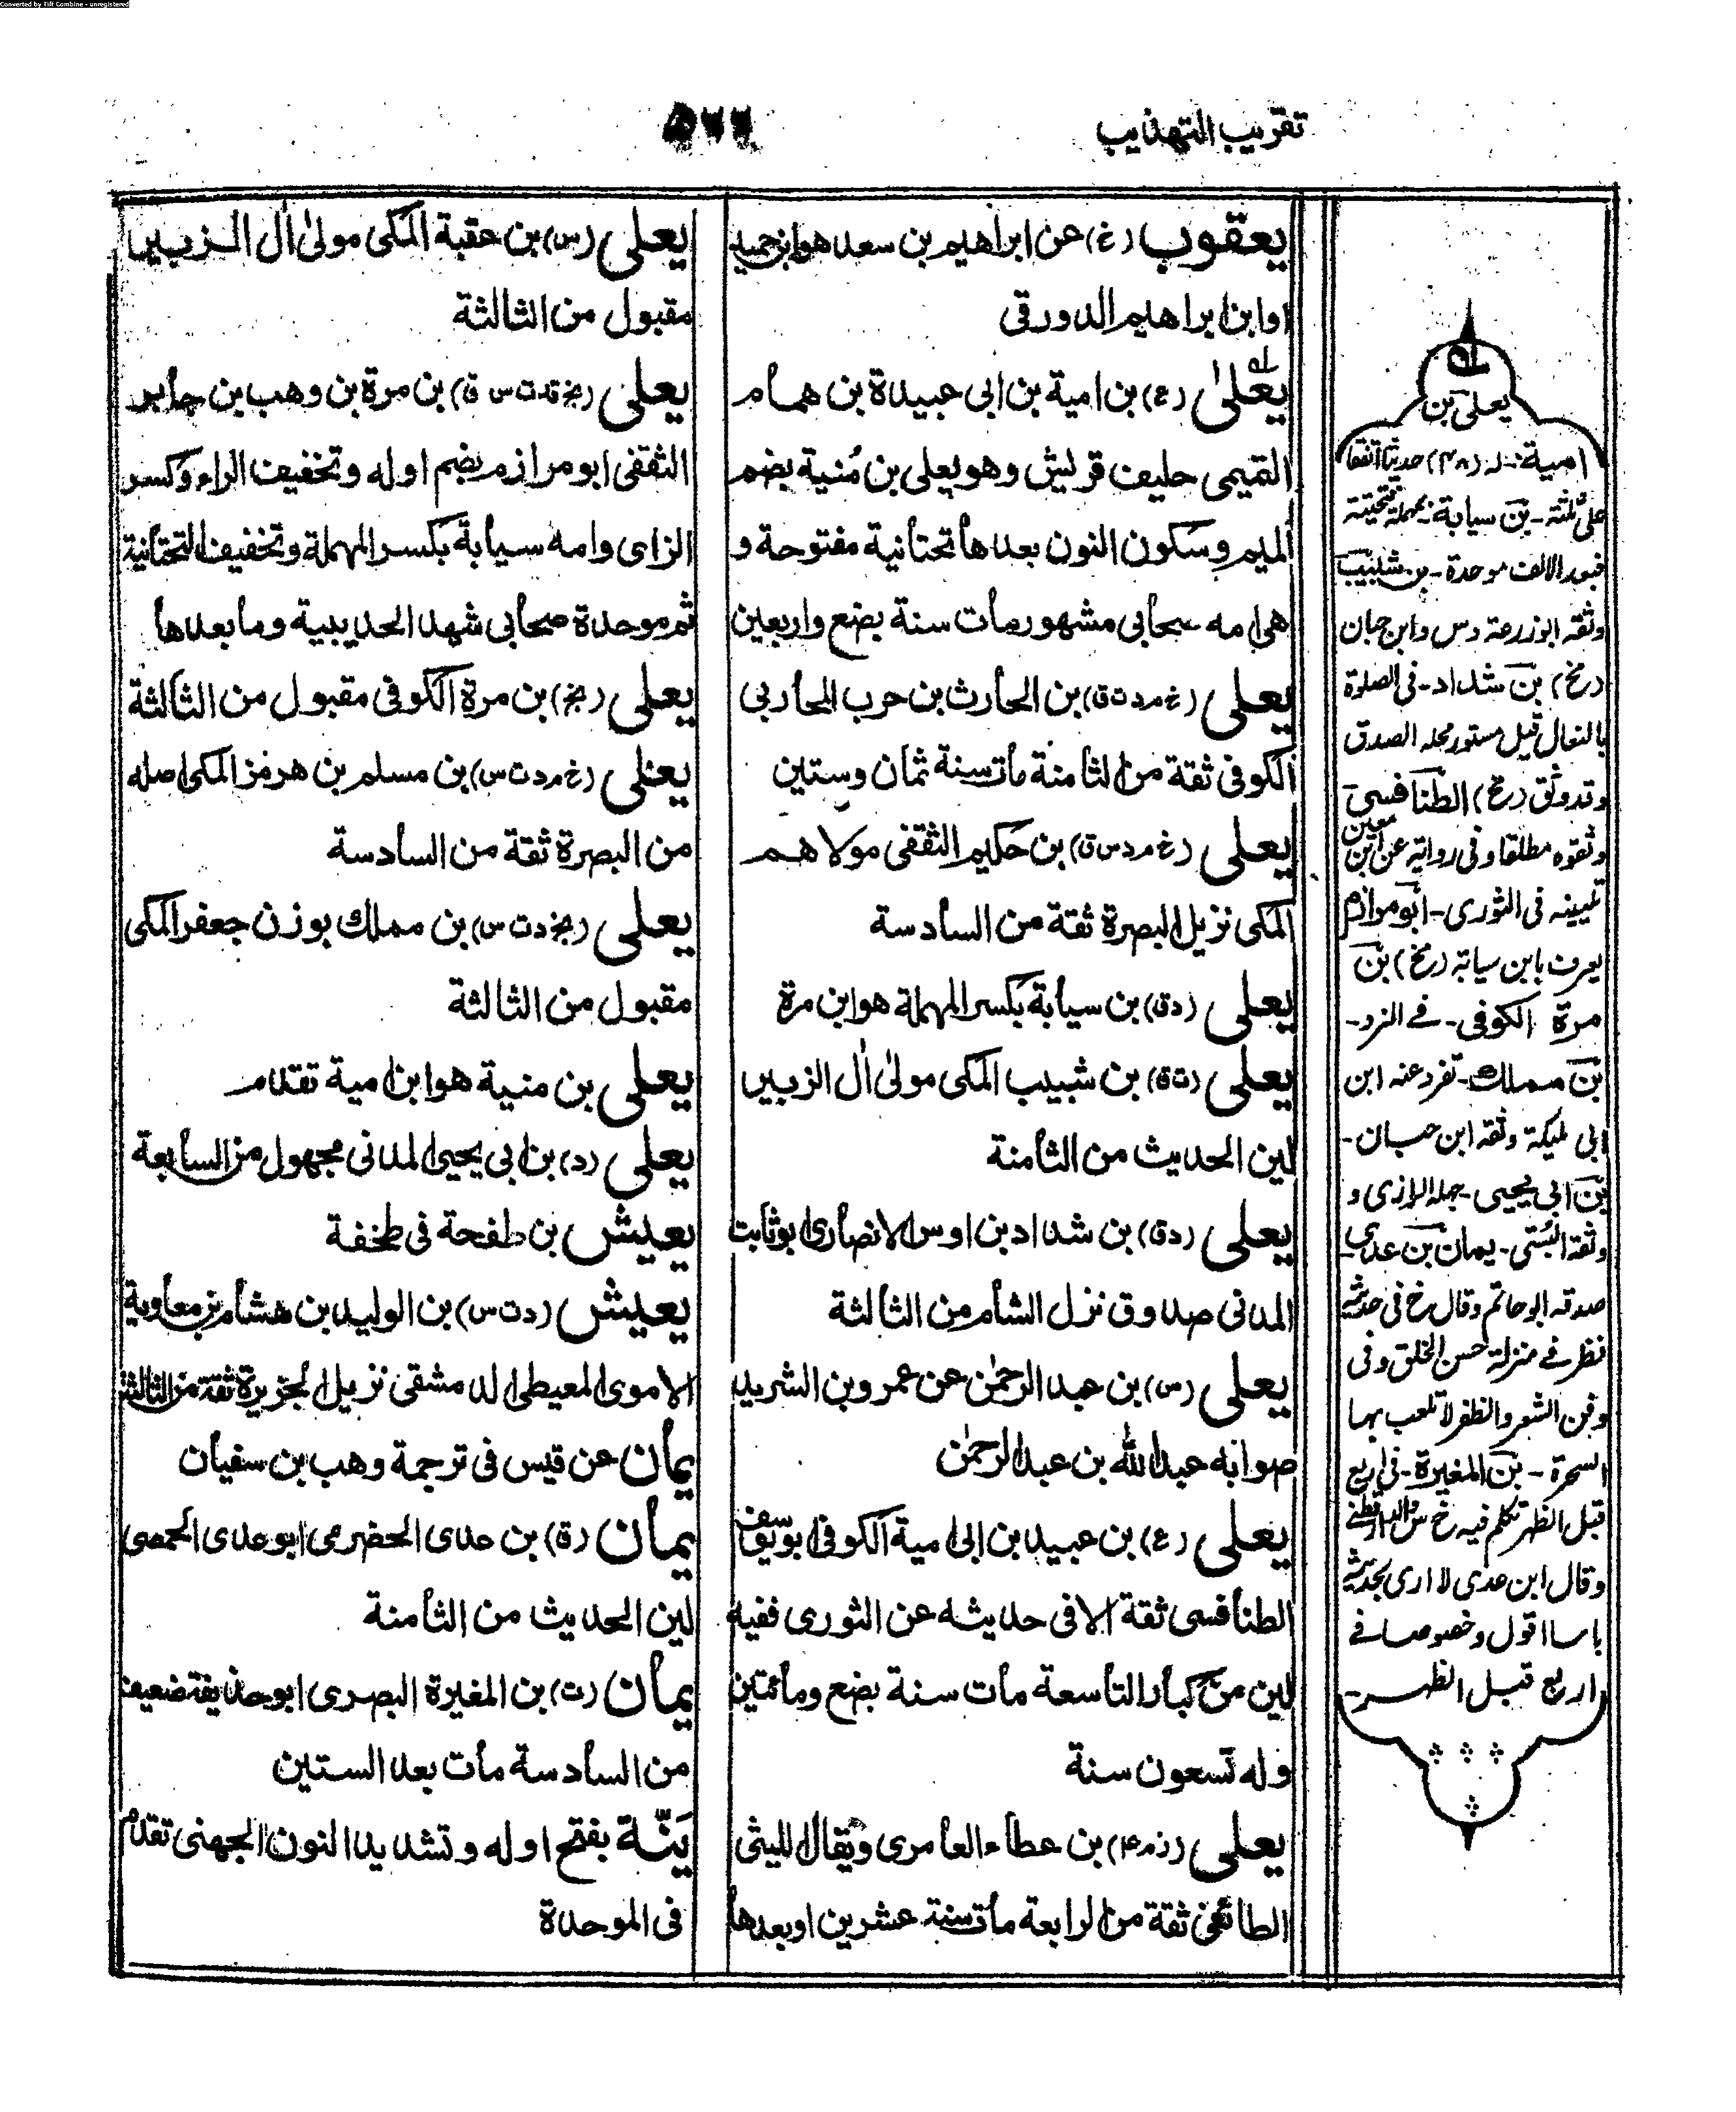 Converted by Tiff Combine - unregistered
تقريب التهذيب
٥٦٦
يعقوب (خ) عن ابراهيم بن سعد هو ابن حميد
او ابن ابراهيم الدورقى
يعلىٰ (ع) بن امية بن ابى عبيدة بن همام
التميمى حليف قريش وهو يعلى بن مُنية بضم
الميم وسكون النون بعدها تحتانية مفتوحة و
هى امه صحابى مشهور مات سنة بضع واربعين
يعلى (خ م د ت ق) بن الحارث بن حرب المحاربى
الكوفى ثقة من الثامنة مات سنة ثمان وستين
يعلى (خ م د س ق) بن حكيم الثقفى مولاهم
المكى نزيل البصرة ثقة من السادسة
يعلى (د ق) بن سيابة بكسر المهملة هو ابن مرة
يعلى (ت ق) بن شبيب المكى مولىٰ اٰل الزبير
لين الحديث من الثامنة
يعلى (د ق) بن شداد بن اوس الانصارى ابو ثابت
المدنى صدوق نزل الشام من الثالثة
يعلى (س) بن عبد الرحمٰن عن عمرو بن الشريد
صوابه عبد الله بن عبد الرحمٰن
يعلى (ع) بن عبيد بن ابى امية الكوفى ابو يوسف
الطنافسى ثقة الا فى حديثه عن الثورى ففيه
لين من كبار التاسعة مات سنة بضع ومائتين
وله تسعون سنة
يعلى (ز م ٤) بن عطاء العامرى ويقال الليثى
الطائفى ثقة من الرابعة مات سنة عشرين او بعدها
يعلى (س) بن عقبة المكى مولىٰ اٰل الزبير
مقبول من الثالثة
يعلى (بخ قد ت س ق) بن مرة بن وهب بن جابر
الثقفى ابو مرازم بضم اوله وتخفيف الراء وكسر
الزاى وامه سيابة بكسر المهملة وتخفيف التحتانية
ثم موحدة صحابى شهد الحديبية وما بعدها
يعلى (بخ) بن مرة الكوفى مقبول من الثالثة
يعلى (خ م د ت س) بن مسلم بن هرمز المكى اصله
من البصرة ثقة من السادسة
يعلى (بخ د ت س) بن مملك بوزن جعفر المكى
مقبول من الثالثة
يعلى بن منية هو ابن امية تقدم
يعلى (د) بن ابى يحيى المدنى مجهول من السابعة
يعيش بن طفحة فى طخفة
يعيش (د ت س) بن الوليد بن هشام بن معاوية
الاموى المعيطى الدمشقى نزيل الجزيرة ثقة من الثالثة
يمان عن قيس فى ترجمة وهب بن سفيان
يمان (ق) بن عدى الحضرمى ابو عدى الحمصى
لين الحديث من الثامنة
يمان (ت) بن المغيرة البصرى ابو حذيفة ضعيف
من السادسة مات بعد الستين
يَنّة بفتح اوله وتشديد النون الجهنى تقدم
فى الموحدة
يعلى بن
امية - له (٤٨) حديثا اتفقا
على ثلثة - بن سيابة - بمهملة فتحتية
فبعد الالف موحدة - بن شبيب
وثقه ابو زرعة وس وابن حبان
(مخ) بن شداد - فى الصلوة
بالنعال قيل مستور محله الصدق
وقد وثق (مخ) الطنافسى
وثقوه مطلقا وفى رواية عن ابن معين
تليينه فى الثورى - ابو مرازم
يعرف بابن سيابة (مخ) بن
مرة الكوفى - فى النرد -
بن مملك - تفرد عنه ابن
ابى مليكة وثقه ابن حبان -
بن ابى يحيى - جهله الرازى و
وثقه البستى - يمان بن عدى
صدقه ابو حاتم وقال خ فى حديثه
نظر فى منزلة حسن الخلق وفى
دفن الشعر والظفر لا تلعب بها
السحرة - بن المغيرة - فى اربع
قبل الظهر تكلم فيه خ س والدارقطنى
وقال ابن عدى لا ارى بحديثه
باسا اقول وخصوصا فى
اربع قبل الظهر -